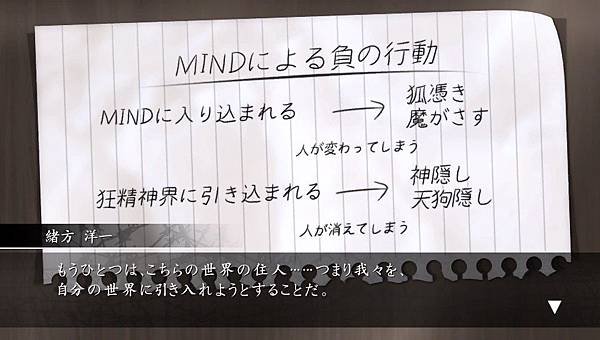 MINDによる負の行動
MINDに入り込まれる → 狐憑き
魔がさす
人が変わってしまう
狂精神界に引き込まれる → 神隠し
天狗隠し
人が消えてしまう
緒方 洋一
もうひとつは、こちらの世界の住人……つまり我々を、
自分の世界に引き入れようとすることだ。